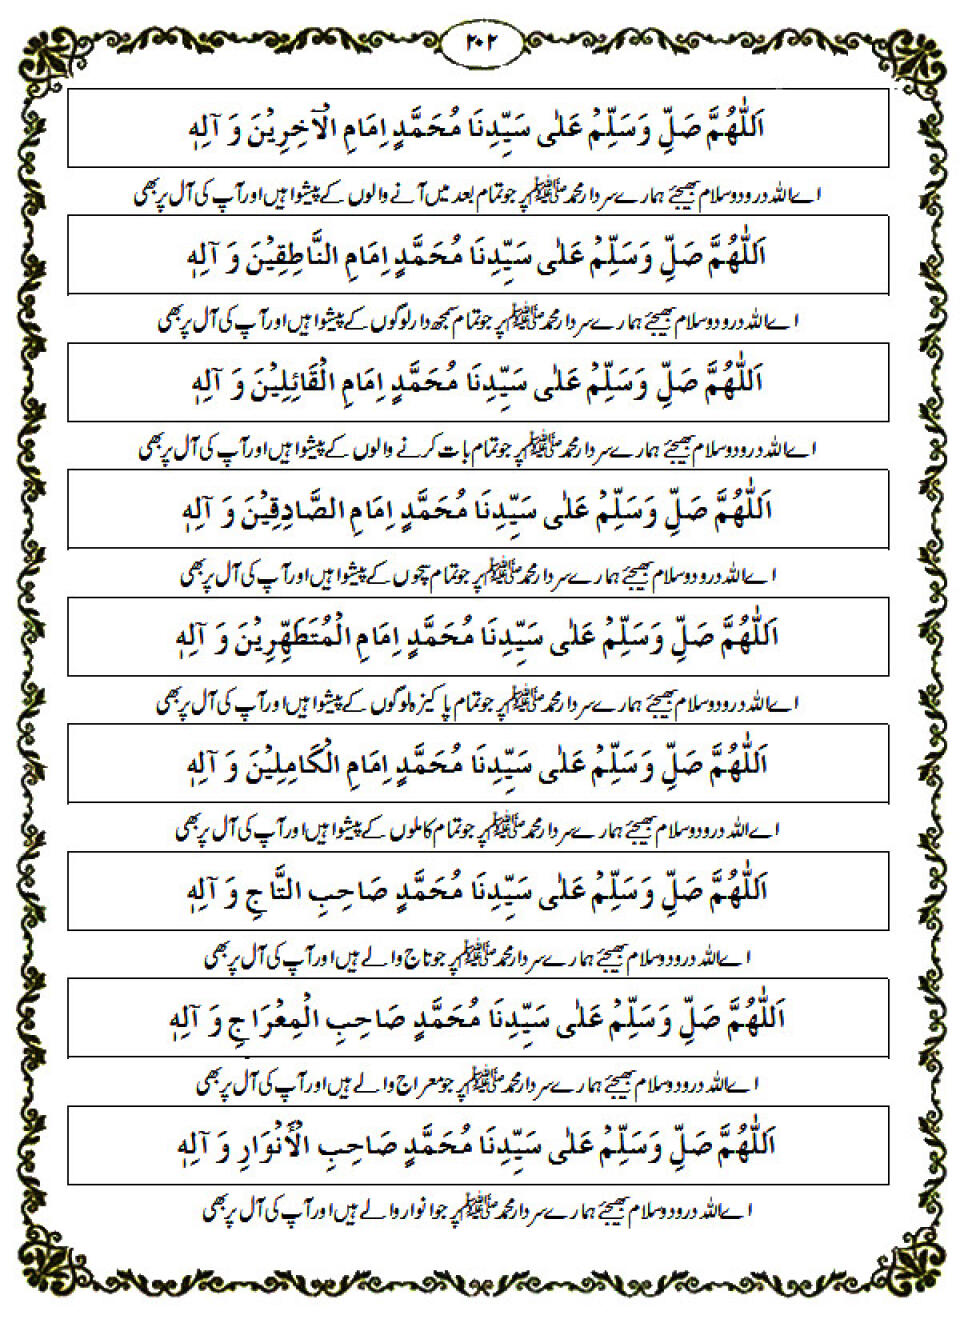 ۲۰۲
اَللّٰهُمَّ صَلِّ وَسَلِّمْ عَلٰى سَيِّدِنَا مُحَمَّدٍ اِمَامِ الْاٰخِرِيْنَ وَ آلِهٖ
اے اللہ درود و سلام بھیجئے ہمارے سردار محمد ﷺ پر جو تمام بعد میں آنے والوں کے پیشوا ہیں اور آپ کی آل پر بھی
اَللّٰهُمَّ صَلِّ وَسَلِّمْ عَلٰى سَيِّدِنَا مُحَمَّدٍ اِمَامِ النَّاطِقِيْنَ وَ آلِهٖ
اے اللہ درود و سلام بھیجئے ہمارے سردار محمد ﷺ پر جو تمام سمجھ دار لوگوں کے پیشوا ہیں اور آپ کی آل پر بھی
اَللّٰهُمَّ صَلِّ وَسَلِّمْ عَلٰى سَيِّدِنَا مُحَمَّدٍ اِمَامِ الْقَائِلِيْنَ وَ آلِهٖ
اے اللہ درود و سلام بھیجئے ہمارے سردار محمد ﷺ پر جو تمام بات کرنے والوں کے پیشوا ہیں اور آپ کی آل پر بھی
اَللّٰهُمَّ صَلِّ وَسَلِّمْ عَلٰى سَيِّدِنَا مُحَمَّدٍ اِمَامِ الصَّادِقِيْنَ وَ آلِهٖ
اے اللہ درود و سلام بھیجئے ہمارے سردار محمد ﷺ پر جو تمام سچوں کے پیشوا ہیں اور آپ کی آل پر بھی
اَللّٰهُمَّ صَلِّ وَسَلِّمْ عَلٰى سَيِّدِنَا مُحَمَّدٍ اِمَامِ الْمُتَطَهِّرِيْنَ وَ آلِهٖ
اے اللہ درود و سلام بھیجئے ہمارے سردار محمد ﷺ پر جو تمام پاکیزہ لوگوں کے پیشوا ہیں اور آپ کی آل پر بھی
اَللّٰهُمَّ صَلِّ وَسَلِّمْ عَلٰى سَيِّدِنَا مُحَمَّدٍ اِمَامِ الْكَامِلِيْنَ وَ آلِهٖ
اے اللہ درود و سلام بھیجئے ہمارے سردار محمد ﷺ پر جو تمام کاملوں کے پیشوا ہیں اور آپ کی آل پر بھی
اَللّٰهُمَّ صَلِّ وَسَلِّمْ عَلٰى سَيِّدِنَا مُحَمَّدٍ صَاحِبِ التَّاجِ وَ آلِهٖ
اے اللہ درود و سلام بھیجئے ہمارے سردار محمد ﷺ پر جو تاج والے ہیں اور آپ کی آل پر بھی
اَللّٰهُمَّ صَلِّ وَسَلِّمْ عَلٰى سَيِّدِنَا مُحَمَّدٍ صَاحِبِ الْمِعْرَاجِ وَ آلِهٖ
اے اللہ درود و سلام بھیجئے ہمارے سردار محمد ﷺ پر جو معراج والے ہیں اور آپ کی آل پر بھی
اَللّٰهُمَّ صَلِّ وَسَلِّمْ عَلٰى سَيِّدِنَا مُحَمَّدٍ صَاحِبِ الْأَنْوَارِ وَ آلِهٖ
اے اللہ درود و سلام بھیجئے ہمارے سردار محمد ﷺ پر جو انوار والے ہیں اور آپ کی آل پر بھی